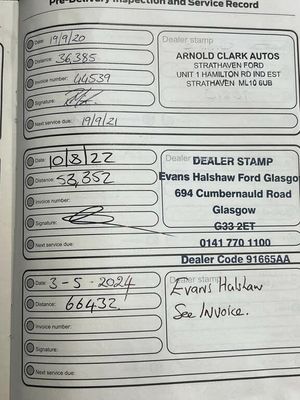 Pre-Delivery Inspection and Service Record
Date: 19/9/20
Distance: 36,385
Invoice number: 44539
Signature:
Next service due: 19/9/21
Dealer stamp
ARNOLD CLARK AUTOS
STRATHAVEN FORD
UNIT 1 HAMILTON RD IND EST
STRATHAVEN ML10 6UB
Date: 10/8/22
Distance: 53,352
Invoice number:
Signature:
Next service due:
Dealer
DEALER STAMP
Evans Halshaw Ford Glasgo
694 Cumbernauld Road
Glasgow
G33 2ET
0141 770 1100
Dealer Code 91665AA
Date: 3-5-2024
Distance: 66432
Invoice number:
Signature:
Next service due:
Dealer stamp
Evans Halshaw
See Invoice.